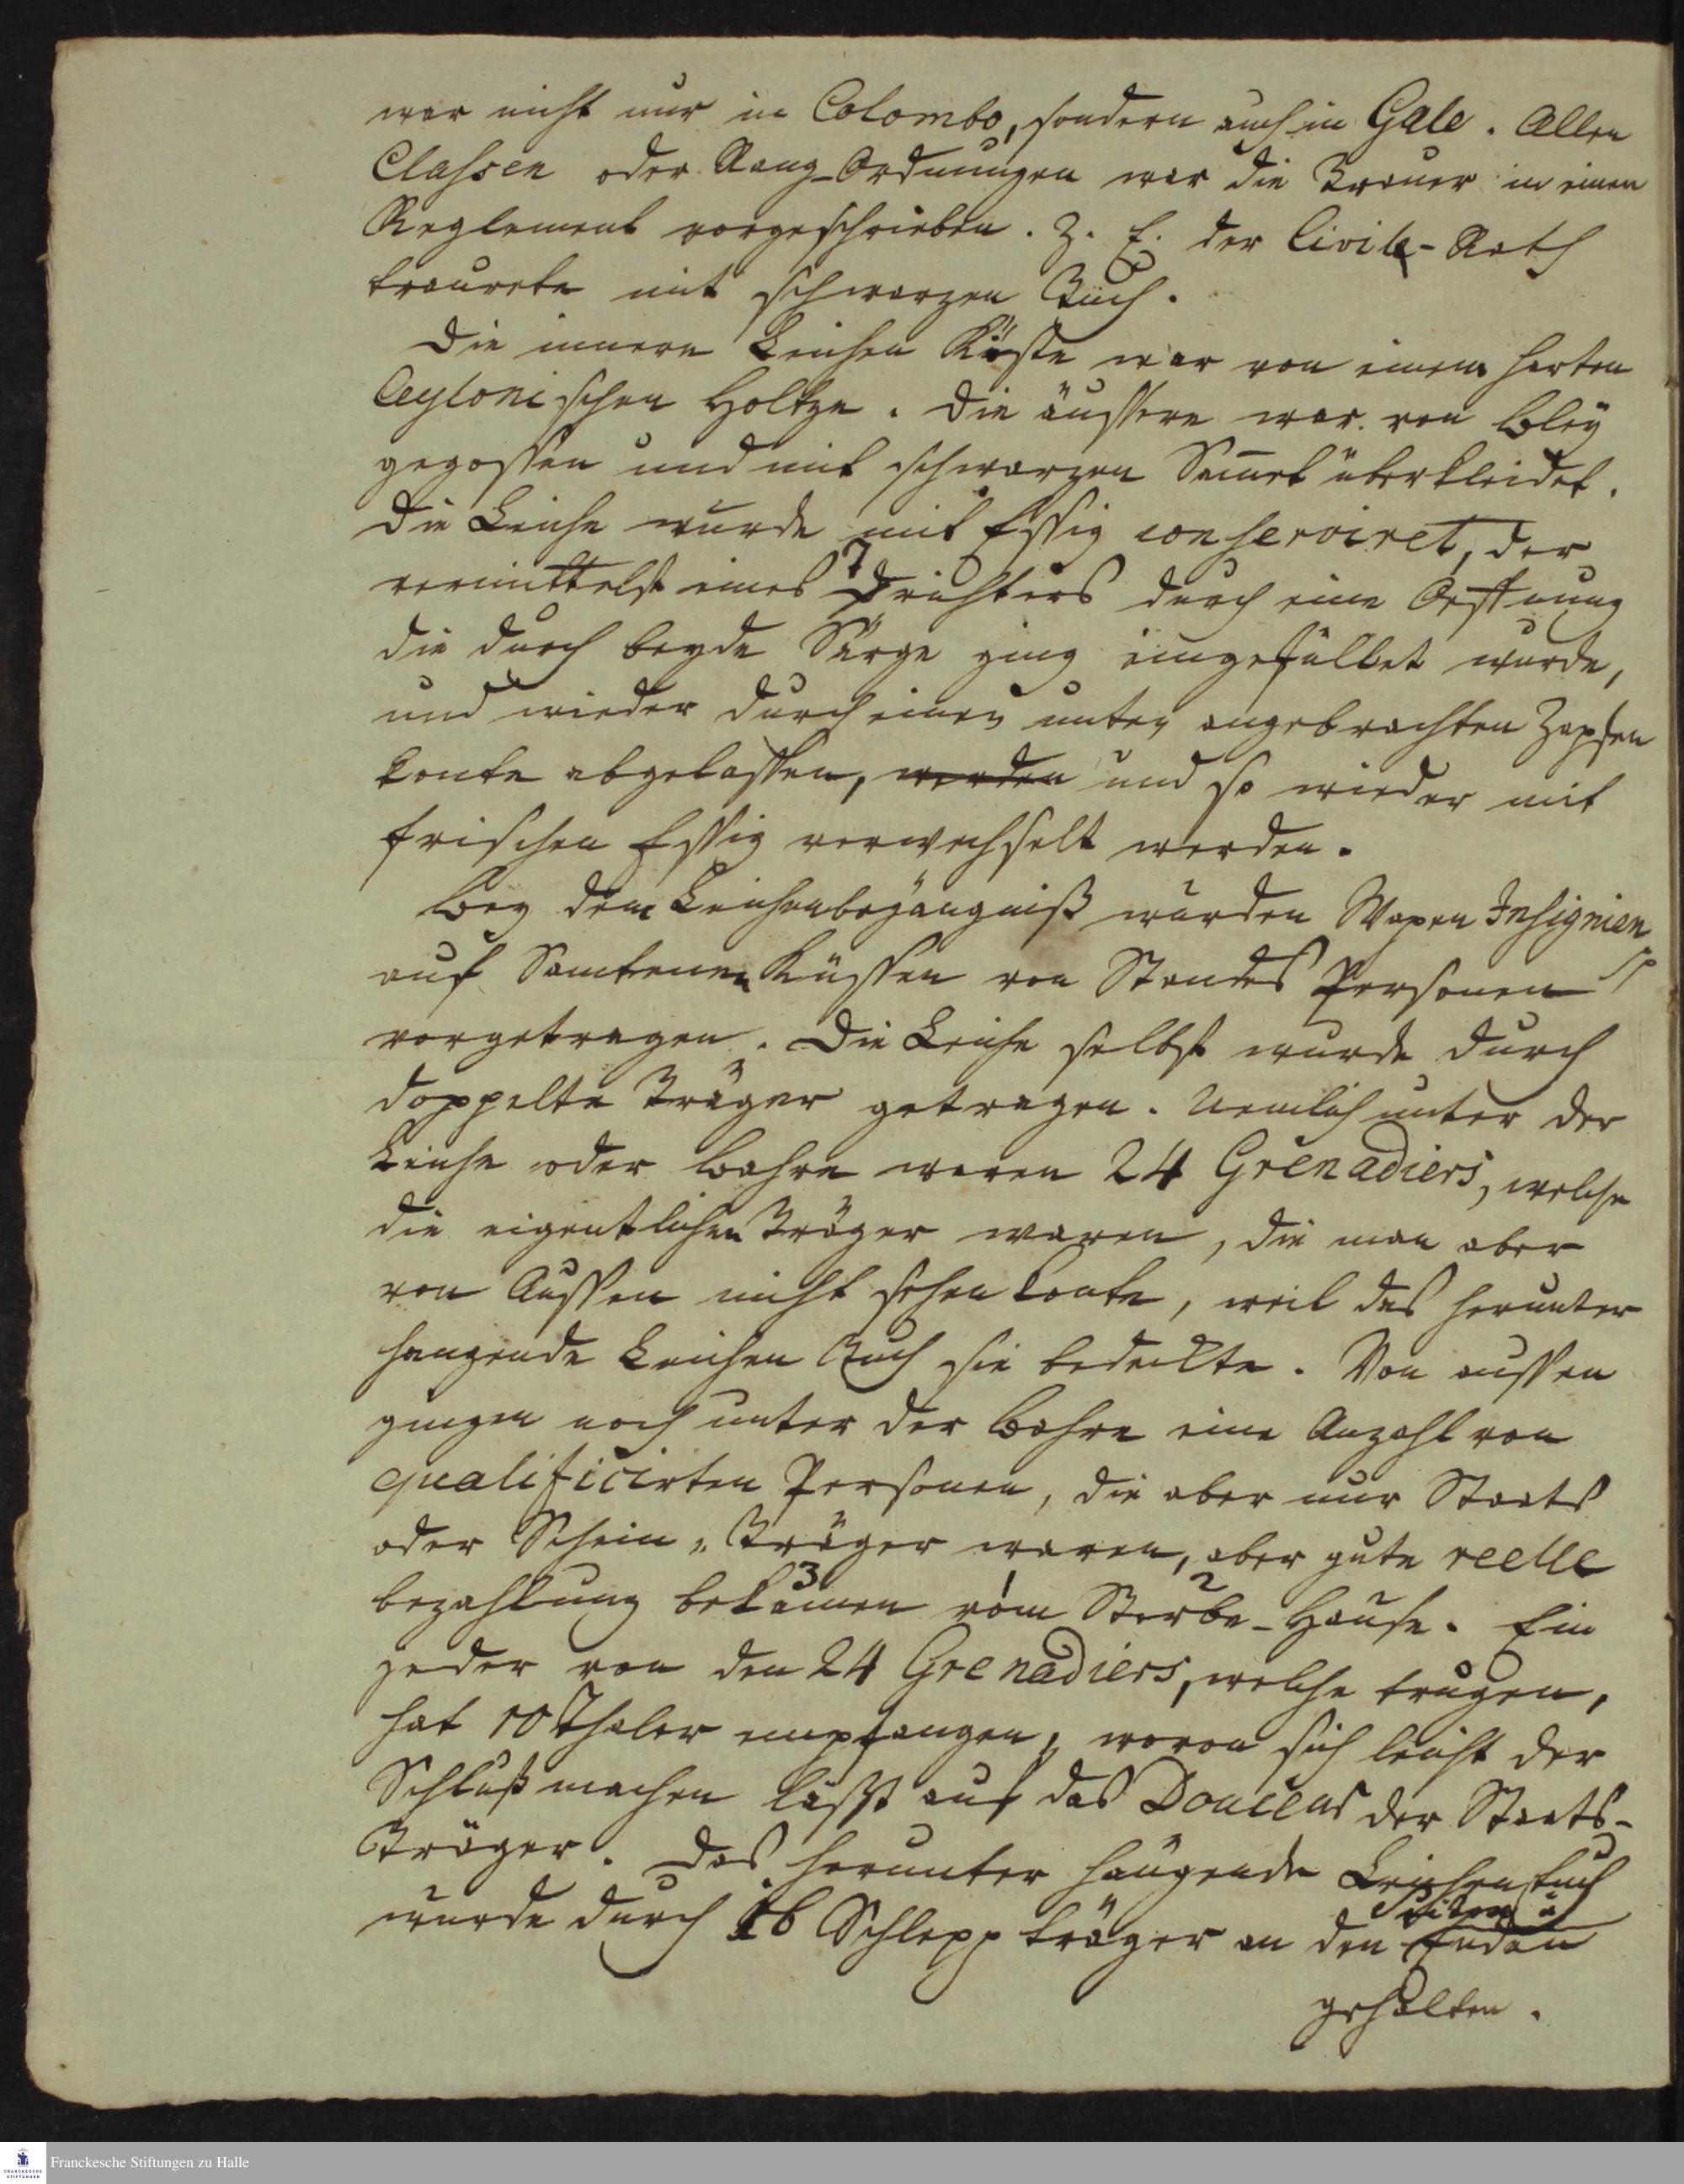 war nicht nur in Colombo, sondern auch in Gale. Allen
Classen oder Rang-Ordnungen war die Trauer in einen
Reglement vorgeschrieben. Z. E. der Civile-Rath
traurete mit schwarzen Tuch.
Die innere Leichen Kiste war von einem harten
Ceylonischen Holtze. Die äussere war von Bley
gegossen und mit schwarzen Samet überkleidet.
Die Leiche wurde mit Essig conserviret, der
vermittelst eines Trichters durch eine Oeffnung
die durch beyde Särge ging eingefüllet wurde,
und wieder durch einen unten angebrachten Zapfen
konte abgelassen, werden und so wieder mit
frischen Essig verwechselt werden.
Bey dem Leichenbegängniß wurden Wapen Insignien
auf Samtenen Küssen von Standes Personen
vorgetragen. Die Leiche selbst wurde durch
doppelte Träger getragen. Nemlich unter der
Leiche oder Bahre waren 24 Grenadiers, welche
die eigentlichen Träger waren, die man aber
von Aussen nicht sehen konte, weil das herunter
hangende Leichen Tuch sie bedeckte. Von aussen
gingen noch unter der Bahre eine Anzahl von
qualificirten Personen, die aber nur Staats
oder Schein-Träger waren, aber gute reelle
3 1 2
bezahlung bekamen vom Sterbe-Hause. Ein
jeder von den 24 Grenadiers, welche trugen,
hat 10 Thaler empfangen, wovon sich leicht der
Schluß machen läßt auf das Douceur der Staats-
Träger. Das herunter hängende Leichentuch
Seiten
wurde durch 16 Schlepp träger an den Enden
gehalten.
Franckesche Stiftungen zu Halle